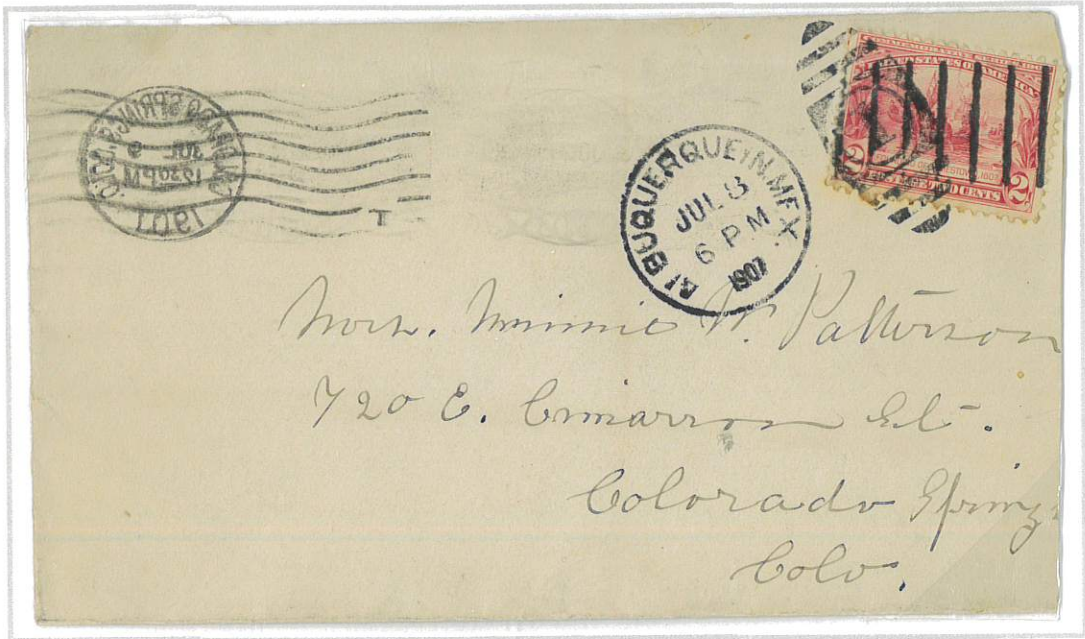 COLORADO SPRINGS, COLO.
JUL
1230PM
1907
T
ALBUQUERQUE, N. MEX.
JUL 3
6 PM
1907
COMMEMORATIVE SERIES 1907
STATES OF AMERICA
1607
2 TWO CENTS 2
Mrs. Minnie W. Patterson
720 E. Cimarron St.
Colorado Springs
Colo.